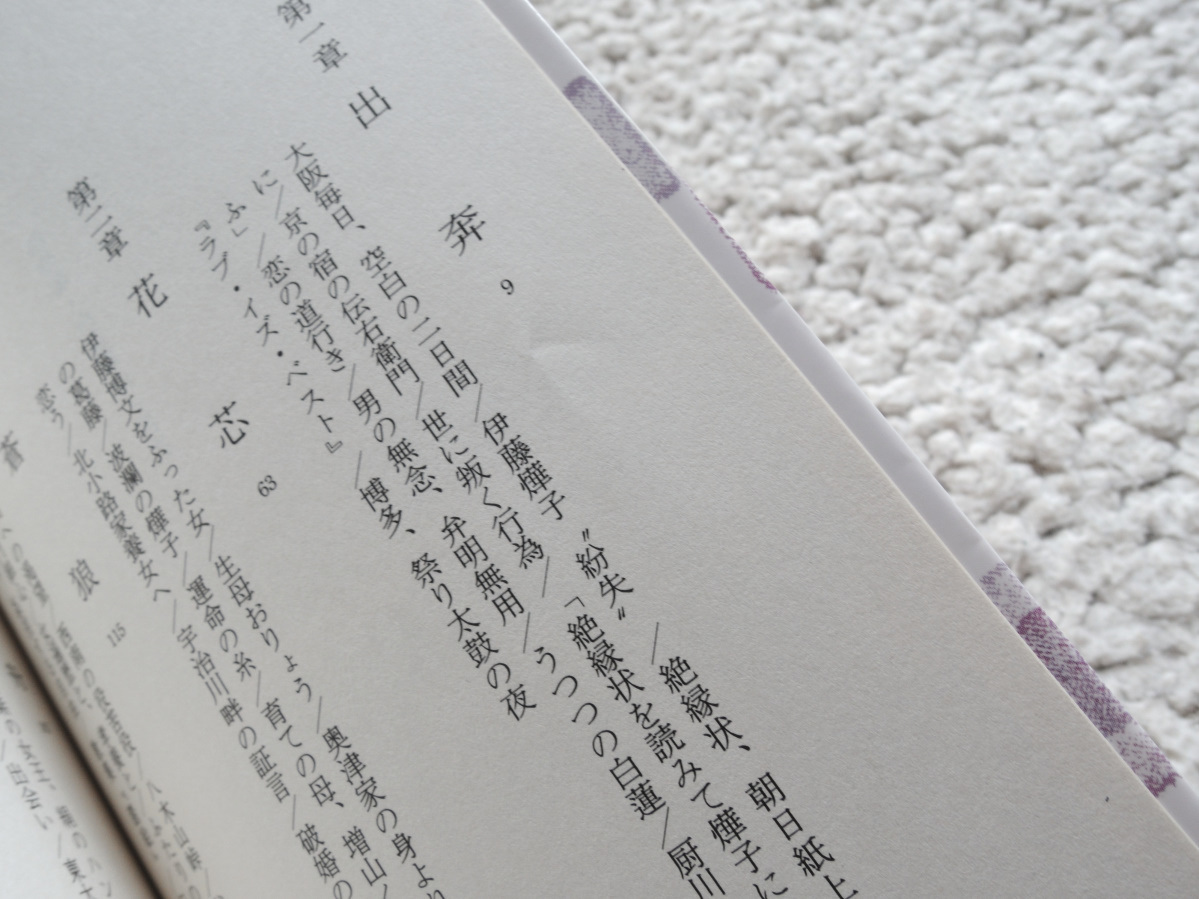 第一章 出奔 9
大阪毎日、空白の二日間/伊藤燁子〝紛失〟/絶縁状、朝日紙上
に/京の宿の伝右衛門/世に叛く行為/「絶縁状を読みて燁子に
ふ」/恋の道行き/男の無念、弁明無用/うつつの白蓮/厨川
『ラブ・イズ・ベスト』/博多、祭り太鼓の夜
第二章 花芯 63
伊藤博文をふった女/生母おりょう/奥津家の身より
の葛藤/波瀾の燁子/運命の糸/育ての母、増山/
恋う/北小路家養女へ/宇治川畔の証言/破婚の
蒼狼 115